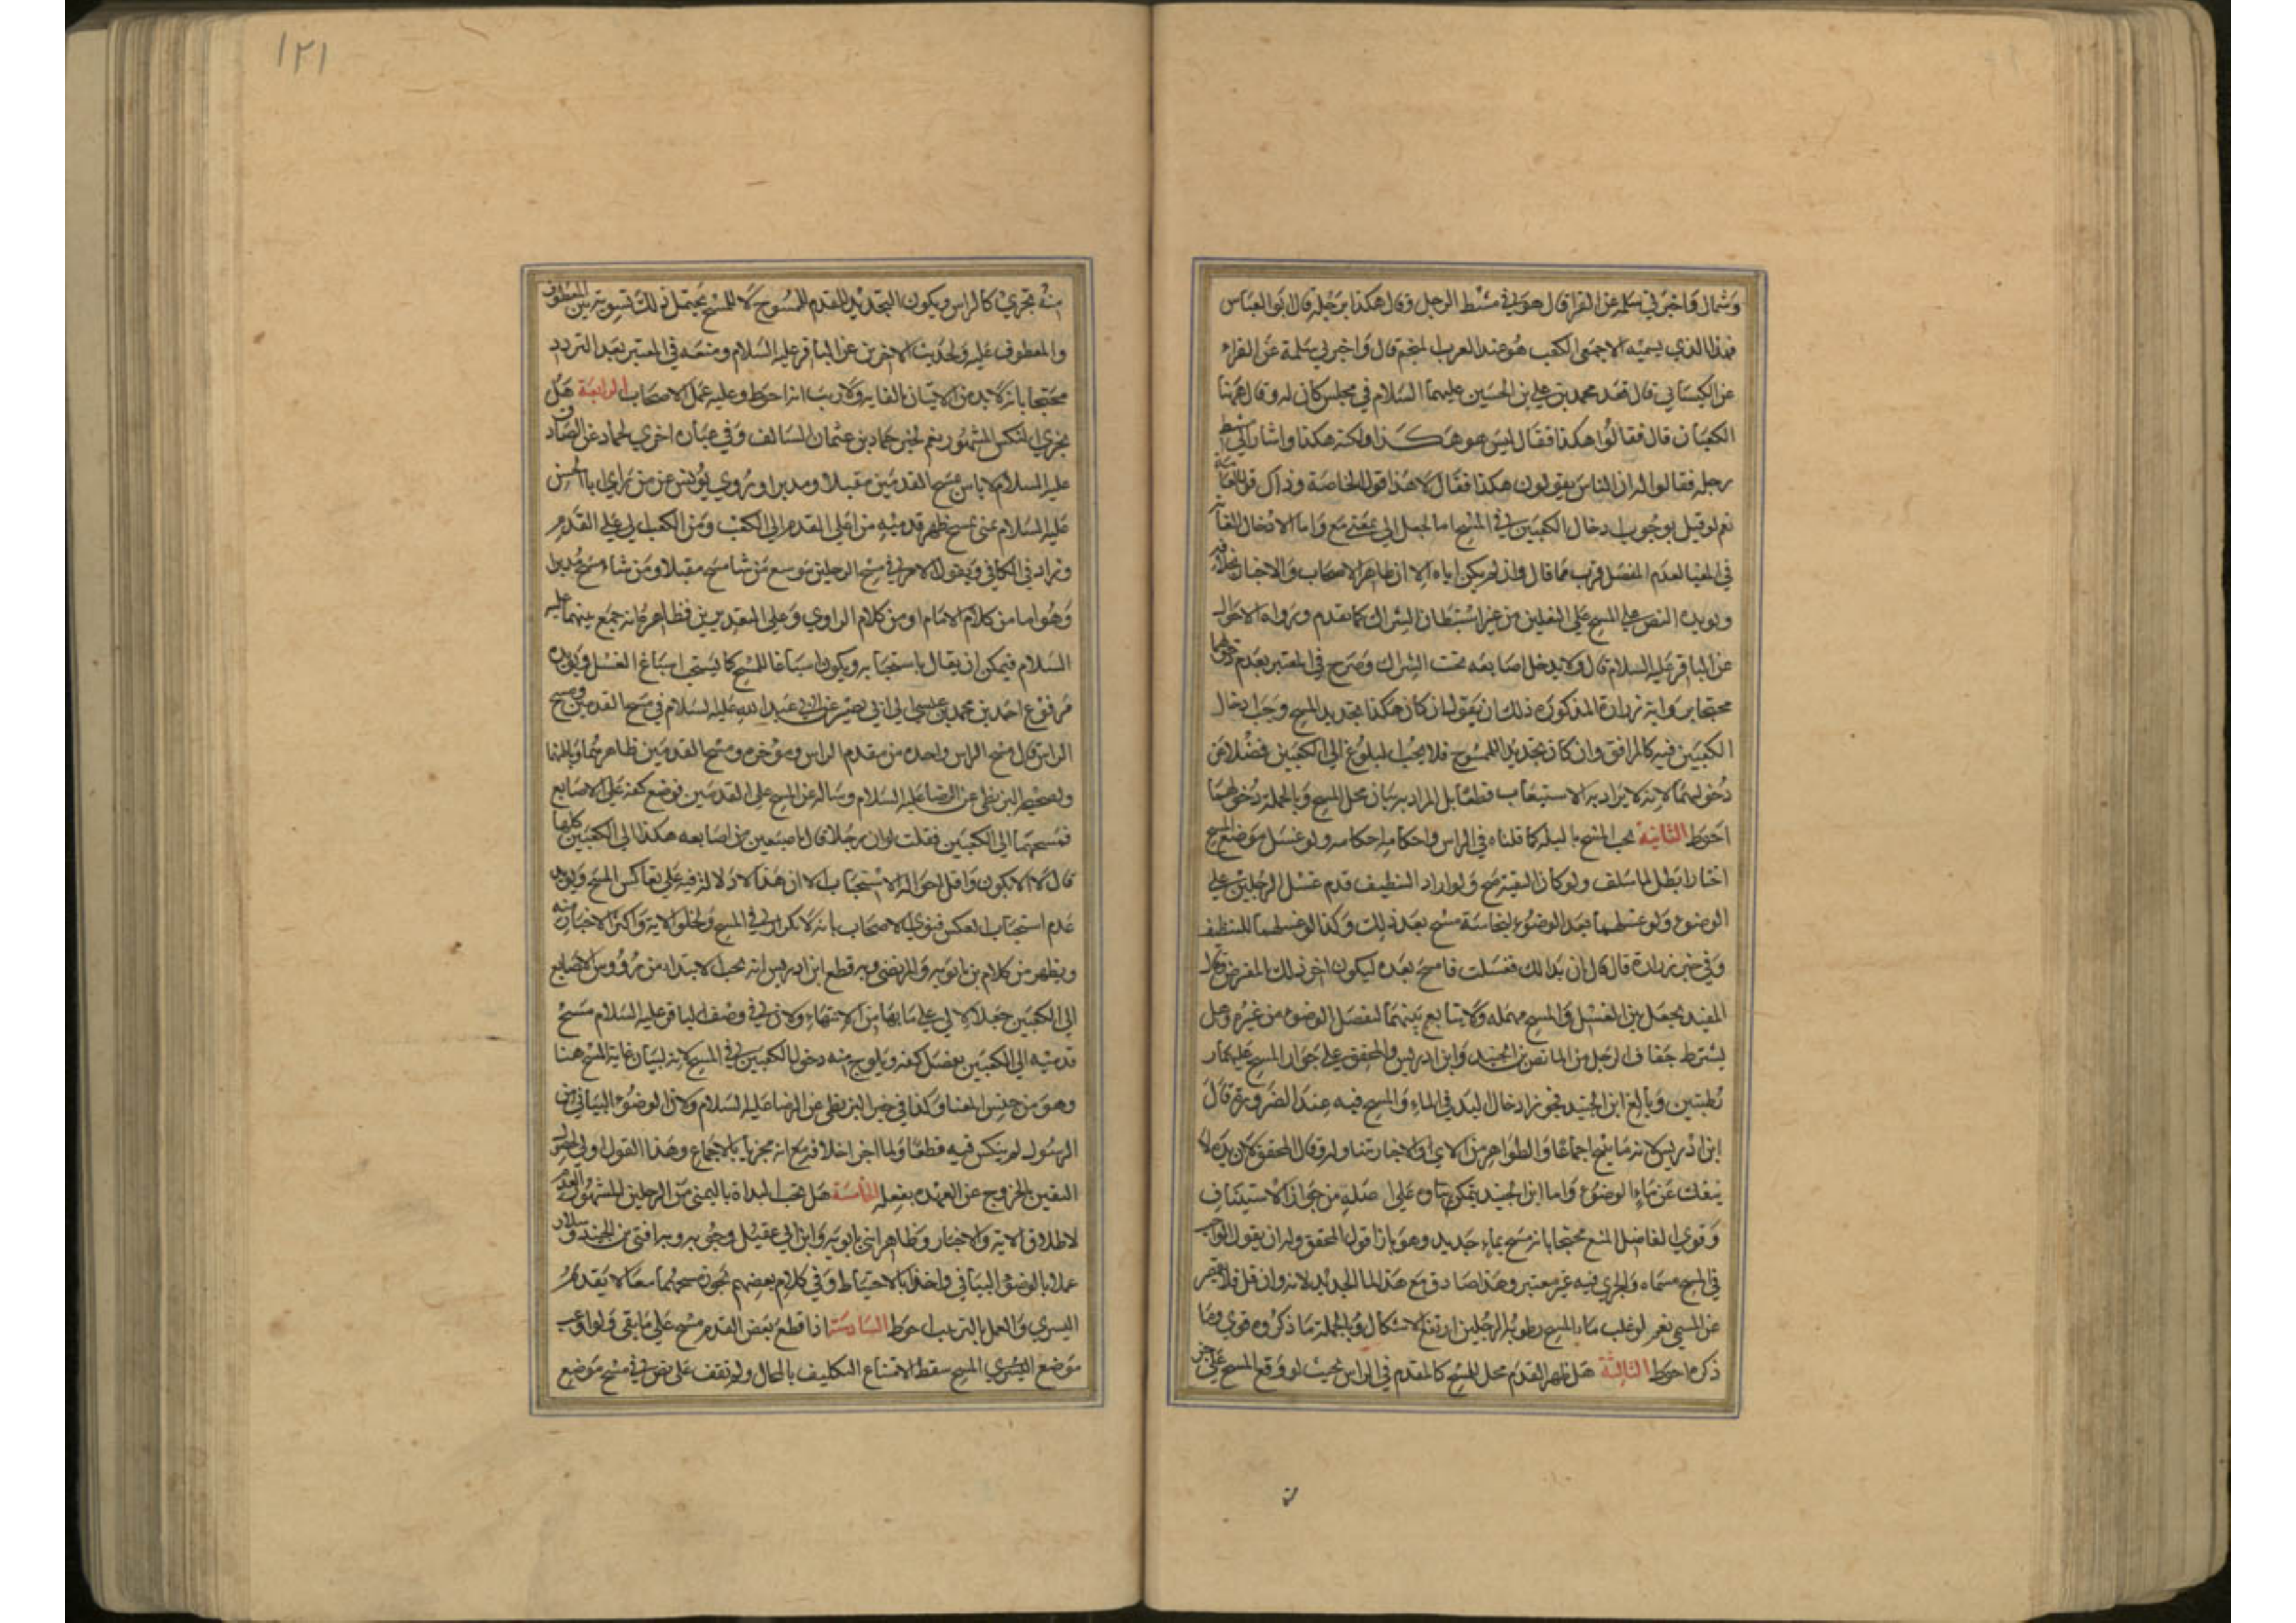 وشمال فاخبرني سلمة عن الفرا قال هو في مشط الرجل وقال هكذا برجله قال ابو العباس
فهذا الذي يسميه الاصمعي الكعب هو عند العرب المنجم قال واخبرني سلمة عن الفراء
عن الكسائي قال قعد محمد بن علي بن الحسين عليهما السلام في مجلس كان له وقال ههنا
الكعبان قال فقالوا هكذا فقال ليس هو هكذا ولكنه هكذا واشار الي مشط
رجله فقالوا له ان الناس يقولون هكذا فقال لا هذا قول الخاصة وذاك قول العامة
نعم لو قيل بوجوب ادخال الكعبين في المسح اما لجعل الي بمعني مع واما لادخال الغاية
في المغيا لعدم المفصل قرب مما قال وان لم يكن اياه الا ان ظاهر الاصحاب والاخبار بخلافه
ويويده النص علي المسح علي النعلين من غير استبطان الشراك كما تقدم ورواه الاحول
عن الباقر عليه السلام قال ولا يدخل اصابعه تحت الشراك وصرح في المعتبر بعدم دخولهما
محتجا برواية زرارة المذكورة ذلك ان يقول ان كان هكذا بتحديد المسح وجب ادخال
الكعبين فيه كالمرافق وان كان تحديدا للممسوح فلا يجب البلوغ الي الكعبين فضلا عن
دخولهما لانه لا يراد به الاستيعاب قطعا بل المراد به بيان محل المسح وبالجملة دخولهما
احوط الثانية يجب المسح بالبلة كما قلناه في الراس واحكامه احكامه ولو غسل موضع المسح
اختارا بطل لما سلف ولو كان لتقية صح ولو اراد التنظيف قدم غسل الرجلين علي
الوضوء ولو غسلهما بعد الوضوء لنجاسة مسح بعد ذلك وكذا لو غسلهما للتنظف
وفي خبر زرارة قال قال ان بدا لك فغسلت فامسح بعده ليكون اخر ذلك المفروض قال
المفيد يجعل بين الغسل والمسح مهملة ولا يتابع بينهما لفصل الوضوء من غيره وهل
يشترط جفاف الرجل من الماء نص بن الجنيد وابن ادريس والمحقق علي جواز المسح عليهما
رطبتين وبالغ ابن الجنيد فجوز ادخال اليد في الماء والمسح فيه عند الضرورة قال
ابن ادريس لانه ماسح اجماعا والظواهر من الاي والاخبار تتناوله وقال المحقق لان يده لا
ينفك عن ماء الوضوء واما ابن الجنيد يتمكن بناوه علي اصله من جواز الاستيناف
وقوي الفاضل المنع محتجا بانه مسح بماء جديد وهو بازا قول المحقق وله ان يقول الواجب
في المسح مسماه والجري فيه غير معتبر وهذا صادق مع هذا الماء الجديد لانه وان قل فلا يقصر
عن المسمي نعم لو غلب ماء المسح رطوبة الرجلين ارتفع الاشكال وبالجملة ما ذكروه قوي وما
ذكره احوط الثالثة هل ظهر القدم محل للمسح كالمقدم في الراس بحيث لو وقع المسح علي جزء
۱۲۱
منه تجزي كالراس ويكون التحديد للقدم الممسوح لا للمسح يحتمل ذلك تسوية بين المعطوف
والمعطوف عليه ولحديث الاخوين عن الباقر عليه السلام ومنعه في المعتبر بعد التردد
محتجا بانه لا بد من الاتيان بالغاية ولا ريب انه احوط وعليه عمل الاصحاب الرابعة هل
يجزي النكس المشهور نعم لخبر حماد بن عثمان السالف وفي عباره اخري لحماد عن الصادق
عليه السلام لا باس بمسح القدمين مقبلا ومدبرا وروي يونس عن من راي ابا الحسن
عليه السلام بمني يمسح ظهر قدميه من اعلي القدم الي الكعب ومن الكعب الي اعلي القدم
وزاد في الكافي ويقول الامر في مسح الرجلين موسع من شا مسح مقبلا ومن شاء مسح مدبرا
وهو اما من كلام الامام او من كلام الراوي وعلي التقديرين فظاهره انه جمع بينهما عليه
السلام فيمكن ان يقال باستحبابه ويكون اسباغا للمسح كما يستحب اسباغ الغسل ويويده
مرفوع احمد بن محمد بن عيسي الي ابي بصير عن ابي عبد الله عليه السلام في مسح القدمين ومسح
الراس قال مسح الراس واحده من مقدم الراس وموخره ومسح القدمين ظاهرهما وباطنهما
ولصحيح البزنطي عن الرضا عليه السلام وساله عن المسح علي القدمين فوضع كفه علي الاصابع
فمسحهما الي الكعبين فقلت لو ان رجلا قال باصبعين من اصابعه هكذا الي الكعبين
قال لا الا بكفه كلها واقل احواله الاستحباب الا ان هذا لا دلالة فيه علي تعاكس المسح ويويد
عدم استحباب العكس فتوي الاصحاب بانه لا تكرار في المسح ولخلو الاية واكثر الاخبار منه
ويظهر من كلام بن بابويه والمرتضي وبه قطع ابن ادريس انه يجب الابتداء من رؤوس الاصابع
الي الكعبين جعلا لالي علي بابها من الانتهاء ولان في وصف الباقر عليه السلام مسح
قدميه الي الكعبين بفضل كفه ويلوح منه دخول الكعبين في المسح لانه لبيان غاية المسح هنا
وهو من جنس المغيا وكذا في خبر البزنطي عن الرضا عليه السلام ولان الوضوء البياني من
الرسول لم ينكس فيه قطعا ولما اجزا خلافه مع انه مجز بالاجماع وهذا القول اولي لحصول
اليقين بالخروج عن العهده بفعله الخامسة هل تجب البداة باليمني من الرجلين المشهور العدم
لاطلاق الاية والاخبار وظاهر ابني بابويه وابن ابي عقيل وجوبه وبه افتي بن الجنيد وسلار
عملا بالوضوء البياني واخذا بالاحتياط وفي كلام بعضهم تجوز مسحهما معا لا تقدم
اليسري والعمل بالترتيب احوط السادسة اذا قطع بعض القدم مسح علي ما بقي ولو اوعب
موضع المسح سقط لامتناع التكليف بالمحال ولم نقف علي نص في مسح موضع